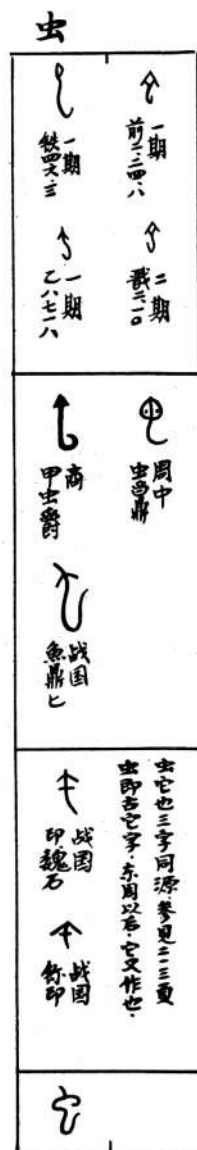 虫
一期
前二·二四·八
二期
戬六·一〇
一期
铁四六·三
一期
乙八七一八
周中
虫𠳋鼎
商
甲虫爵
战国
鱼鼎匕
虫它也三字同源·参见二一三页
虫即古它字·东周以后·它又作也·
战国
印·魏石
战国
鉨印